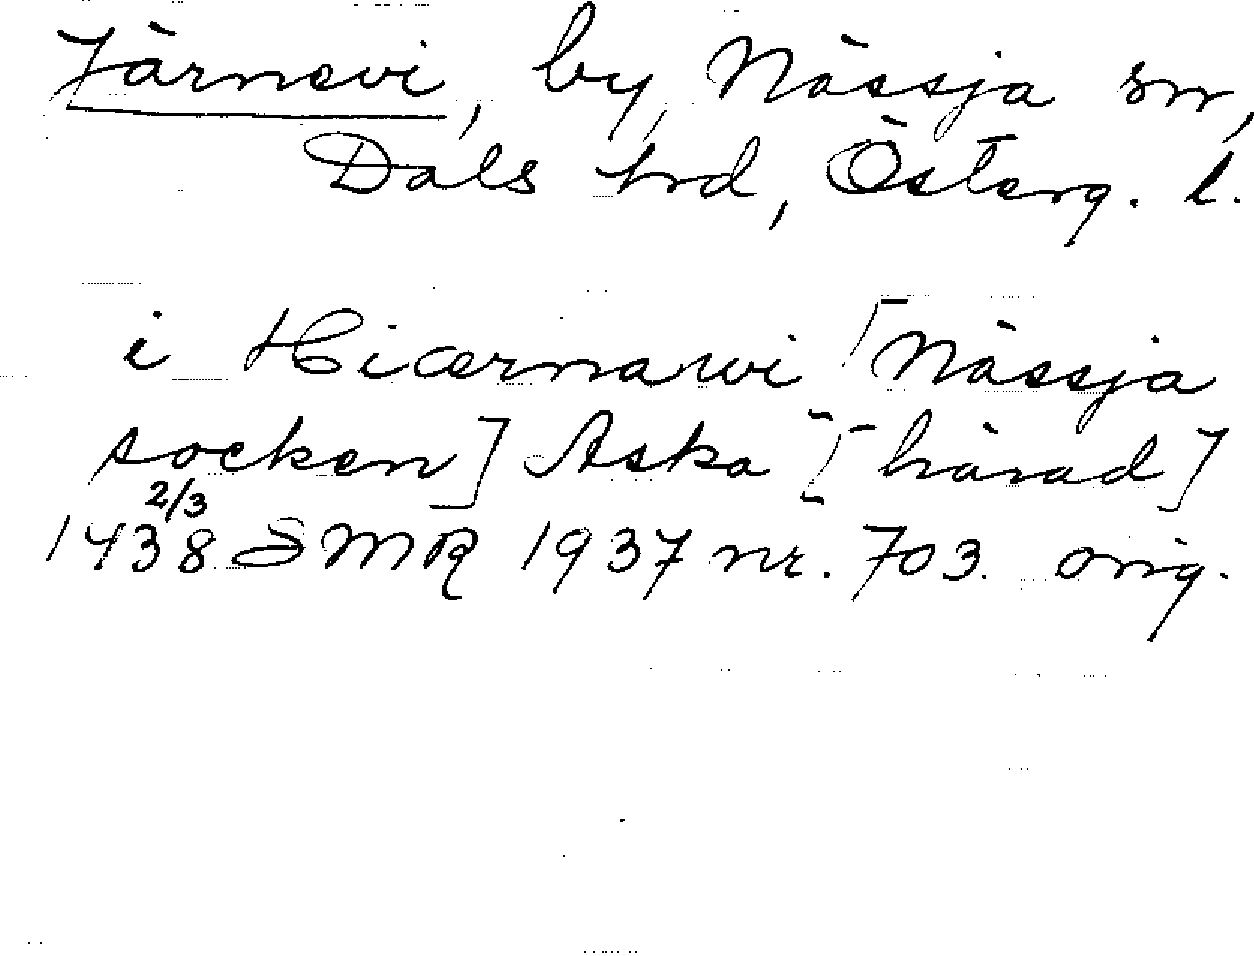 Järnevi, by, Nässja sn,
Dals hrd, Österg. l.
i Hiærnawi [Nässja
socken] Aska [härad]
2/3
1438 SMR 1937 nr. 703. orig.